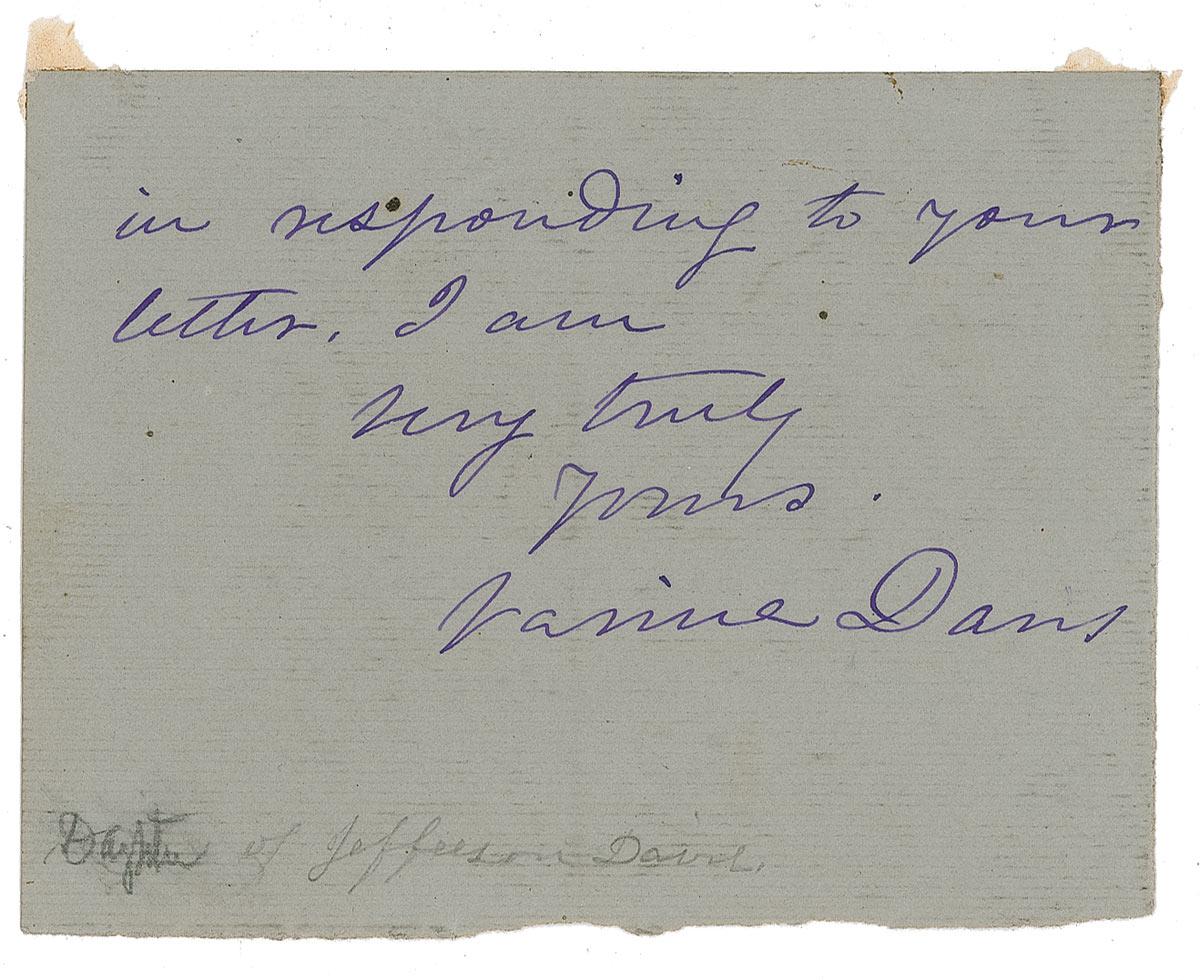 in responding to your
letter, I am
very truly
yours.
Varina Davis
Daughter of Jefferson Davis.